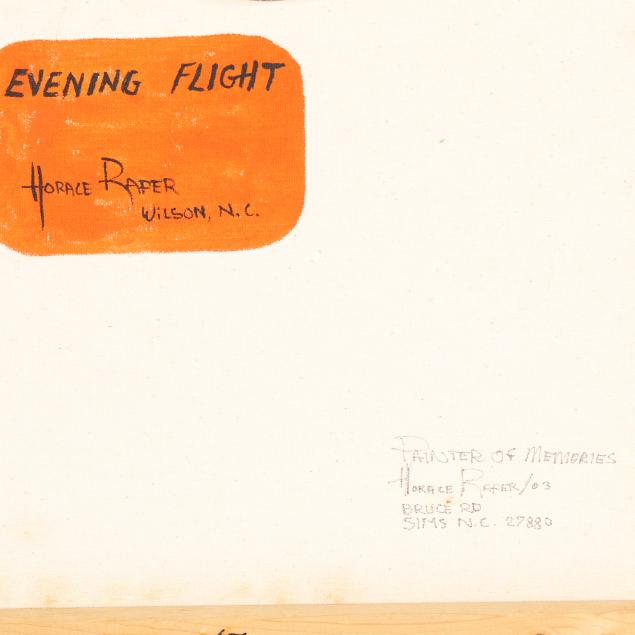 EVENING FLIGHT
HORACE RAPER
WILSON, N.C.
PAINTER OF MEMORIES
HORACE RAPER/03
BRUCE RD
SIMS N.C. 27880